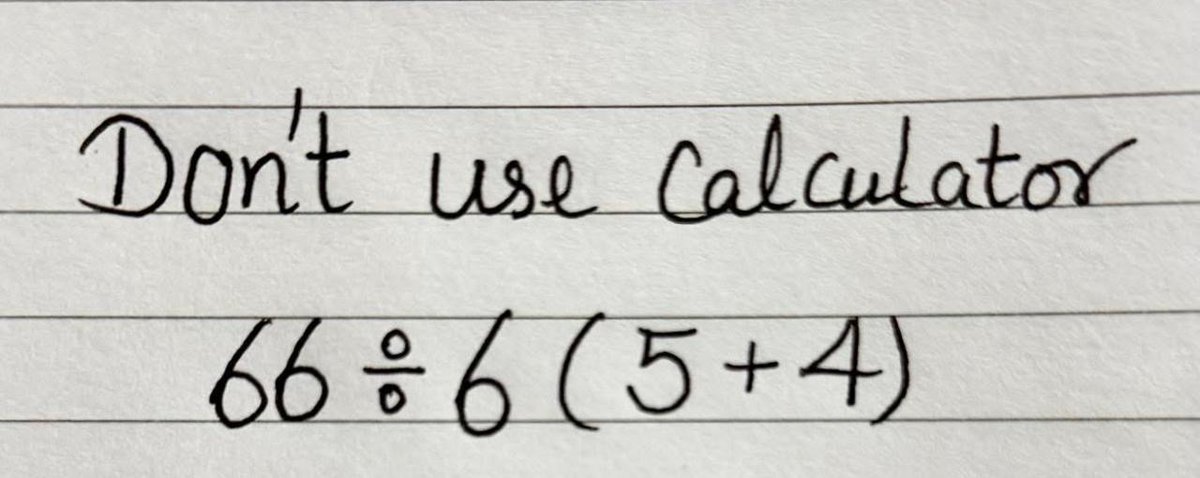 Don't use Calculator
66 ÷ 6 ( 5 + 4 )